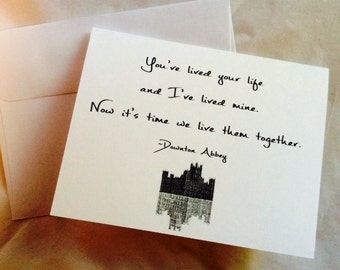 You've lived your life
and I've lived mine.
Now it's time we live them together.
-Downton Abbey